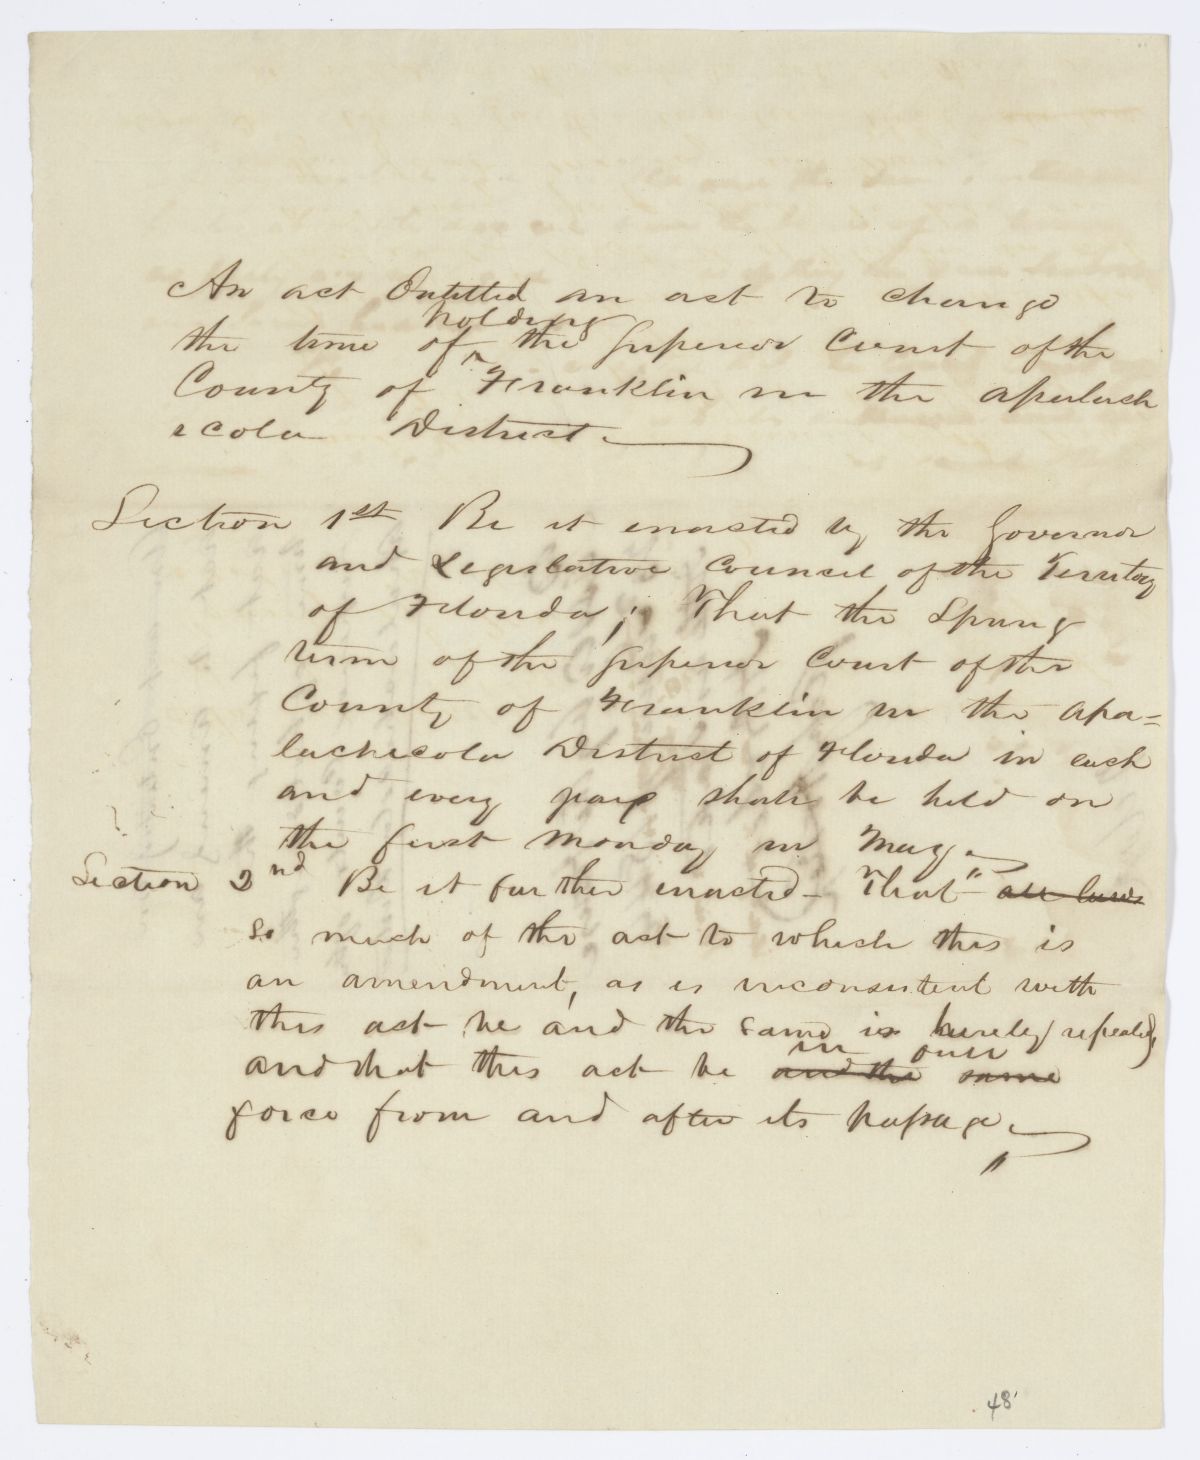 An act Entitled an act to change
holding
the time of ^ the Superior Court of the
County of Franklin in the Apalach
icola District.
Section 1st Be it enacted by the Governor
and Legislative Council of the Territory
of Florida; That the Spring
term of the Superior Court of the
County of Franklin in the Apa=
lachicola District of Florida in each
and every year shall be held on
the first Monday in May.
Section 2nd Be it further enacted - That all laws
so much of the act to which this is
an amendment, as is inconsistent with
this act be and the same is hereby repealed,
in
and that this act be and the same
force from and after its passage.
48